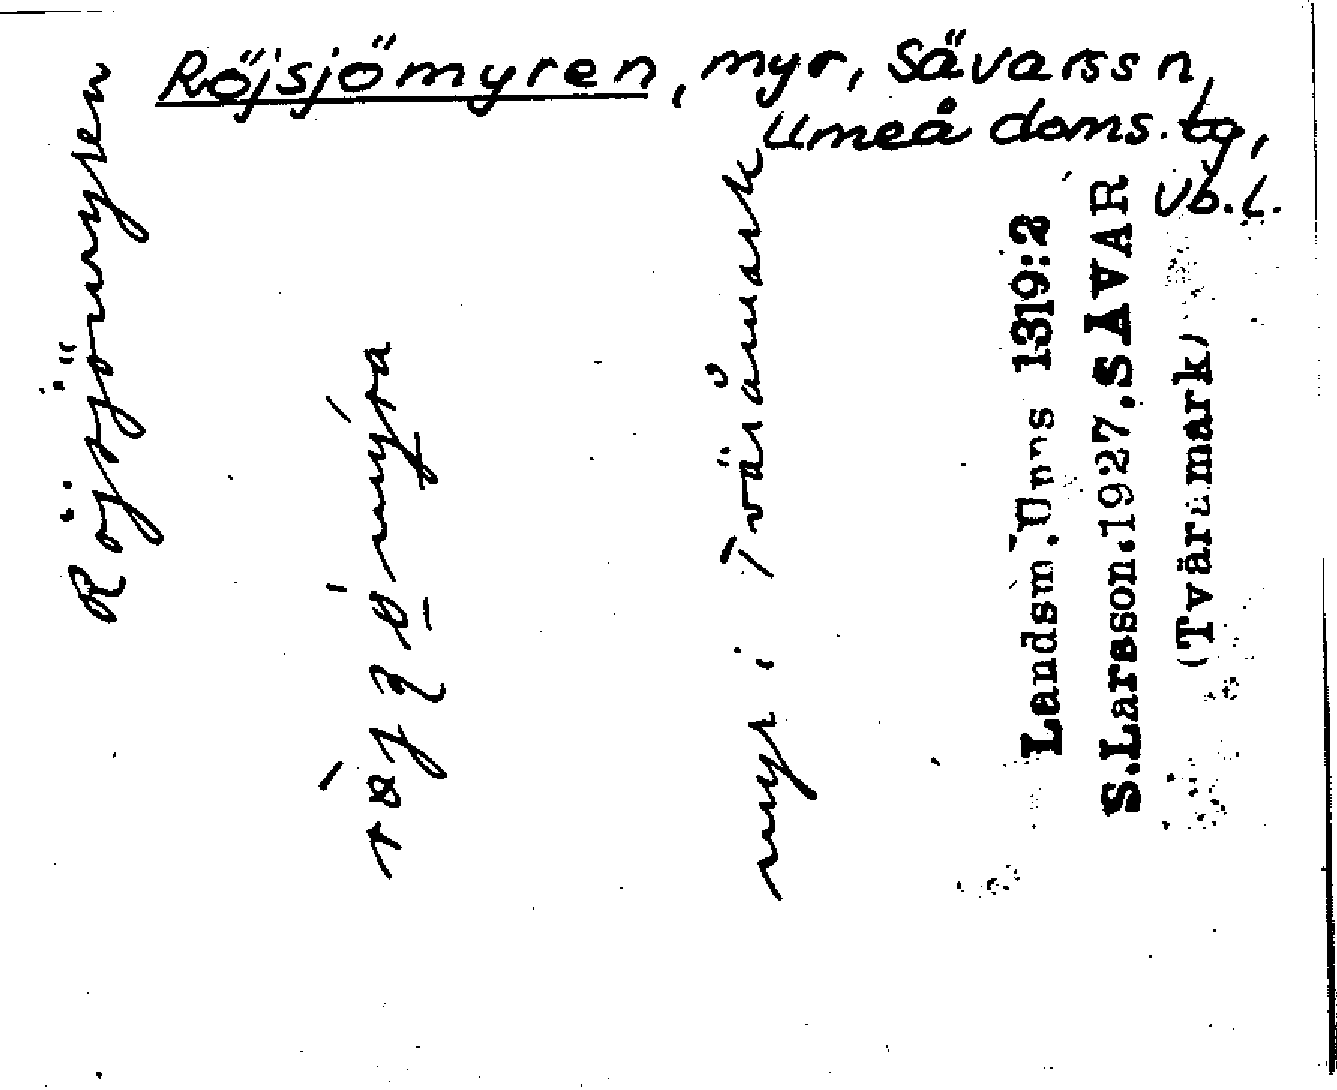 Röjsjömyren, myr, Sävars sn,
Umeå doms. tg,
Vb. l.
Röjsjömyren
myr i Tväråmark
Landsm. Upps 1319:2
S.Larsson.1927.SÄVAR
(Tväråmark)